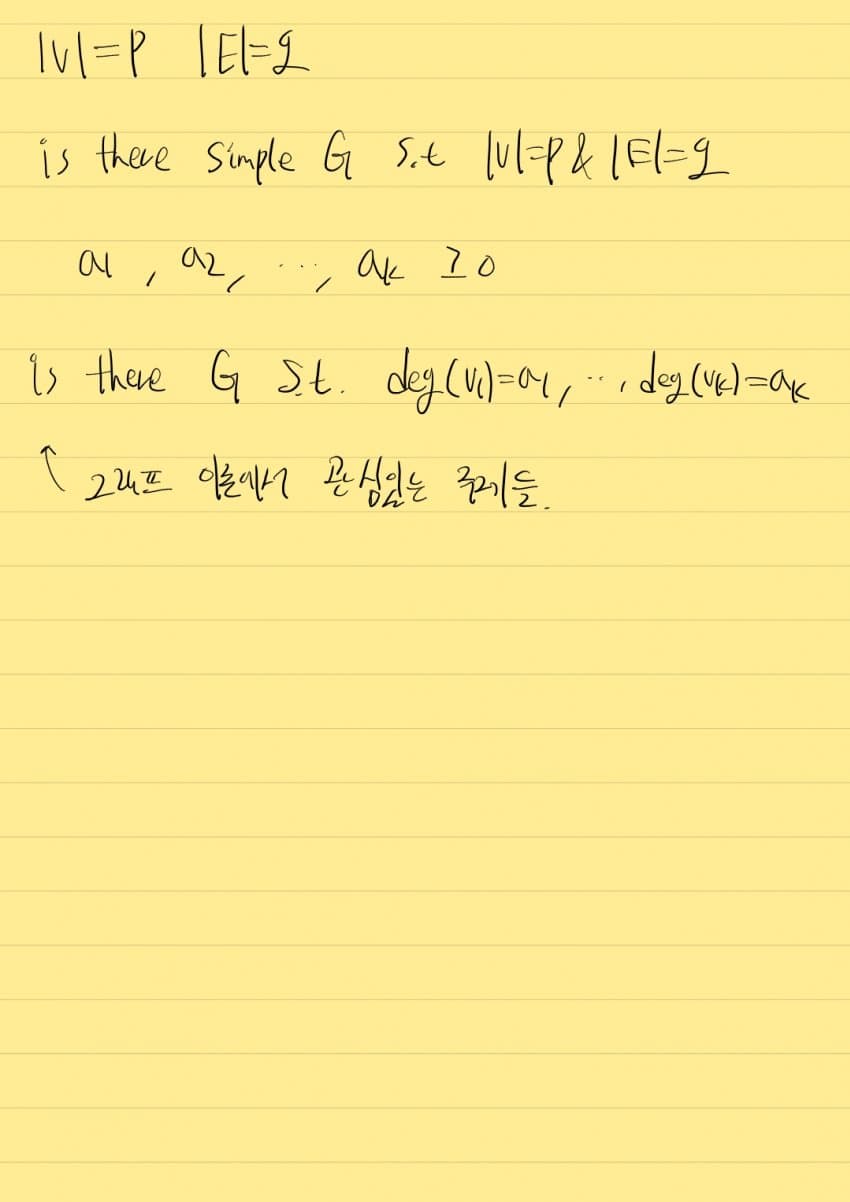 |V|=p |E|=q
is there simple G s.t |V|=p & |E|=q
a1, a2, ..., ak ≥ 0
is there G s.t. deg(v1)=a1, ..., deg(vk)=ak
↑ 그래프 이론에서 관심있는 주제들.